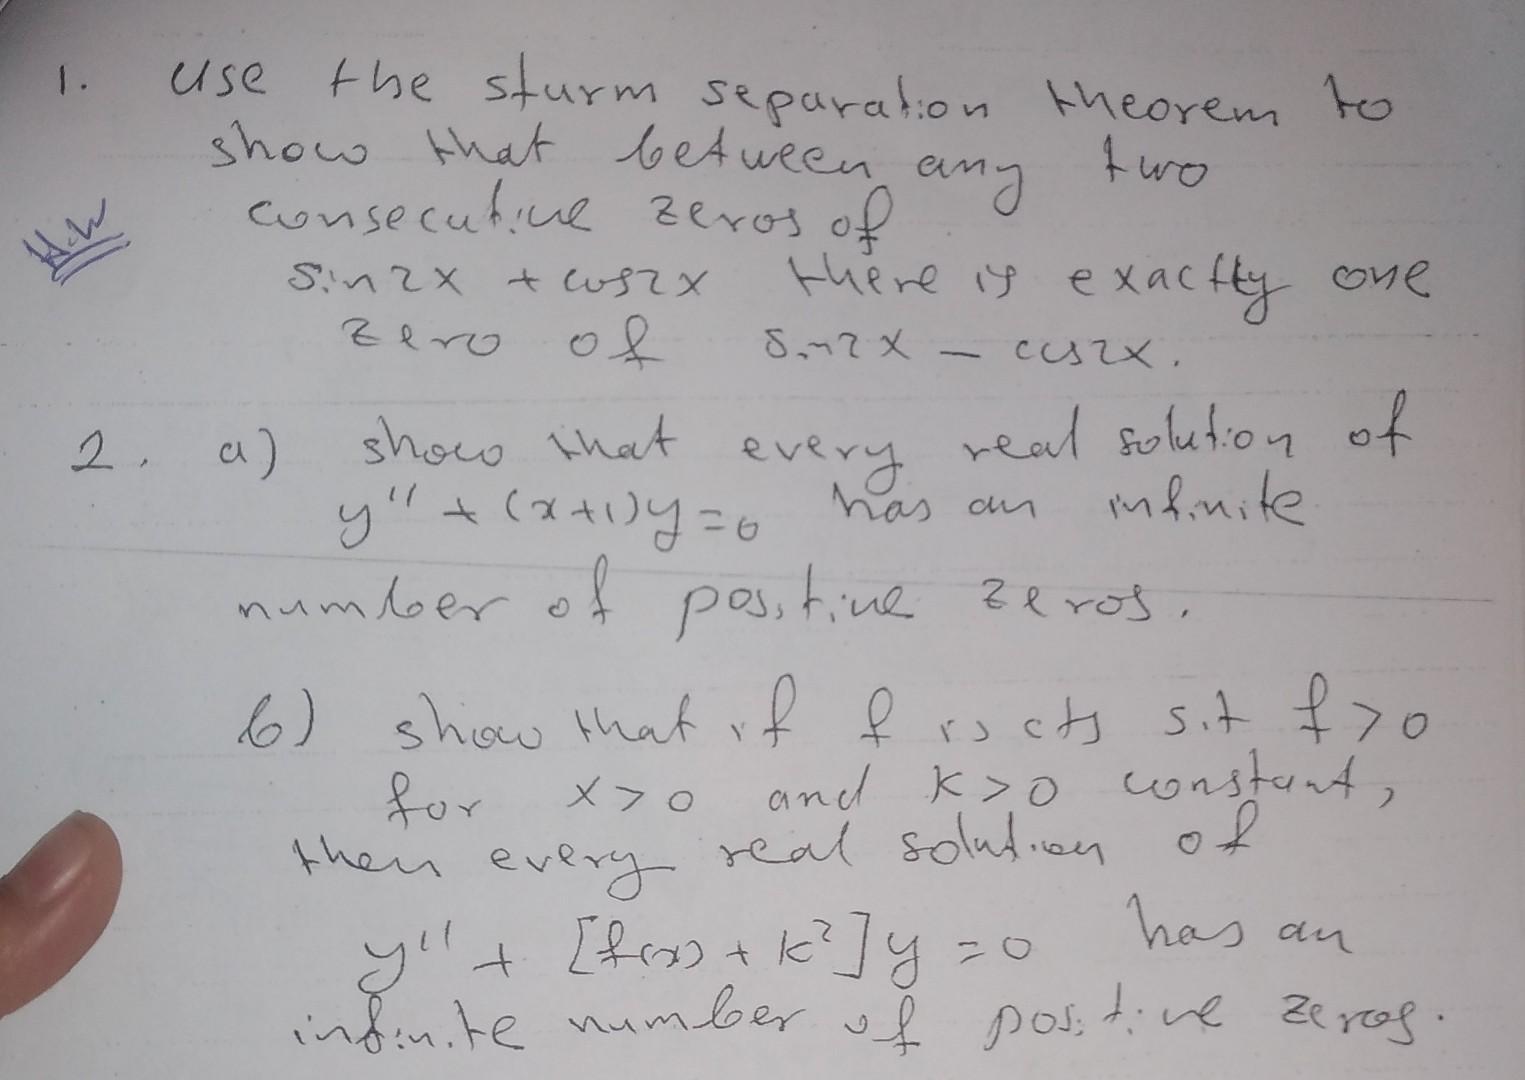 1. use the sturm separation theorem to
show that between any two
consecutive zeros of
sin2x + cos2x there is exactly one
zero of sin2x - cos2x.
H.W
2. a) show that every real solution of
y'' + (x+1)y=0 has an infinite
number of positive zeros.
b) show that if f is cts s.t f>0
for x>0 and k>0 constant,
then every real solution of
y'' + [f(x) + k²]y =0 has an
infinite number of positive zeros.